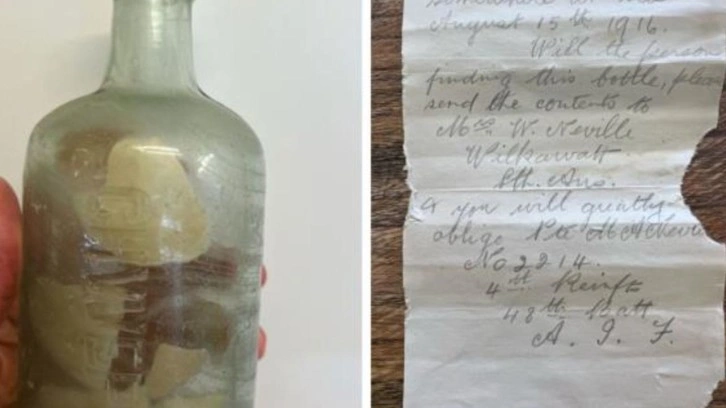 somewhere
August 15th 1916.
Will the person
finding this bottle, please
send the contents to
Mrs W. Neville
Wilkawatt
Sth. Aus.
& you will greatly
oblige Pte
No 2214.
4th Reinft
48th Batt
A. I. F.